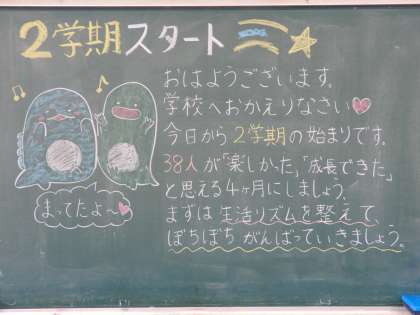 2学期スタート
おはようございます。
学校へおかえりなさい
今日から2学期の始まりです。
38人が「楽しかった」「成長できた」
と思える4ヶ月にしましょう。
まずは生活リズムを整えて、
ぼちぼちがんばっていきましょう。
まってたよ〜